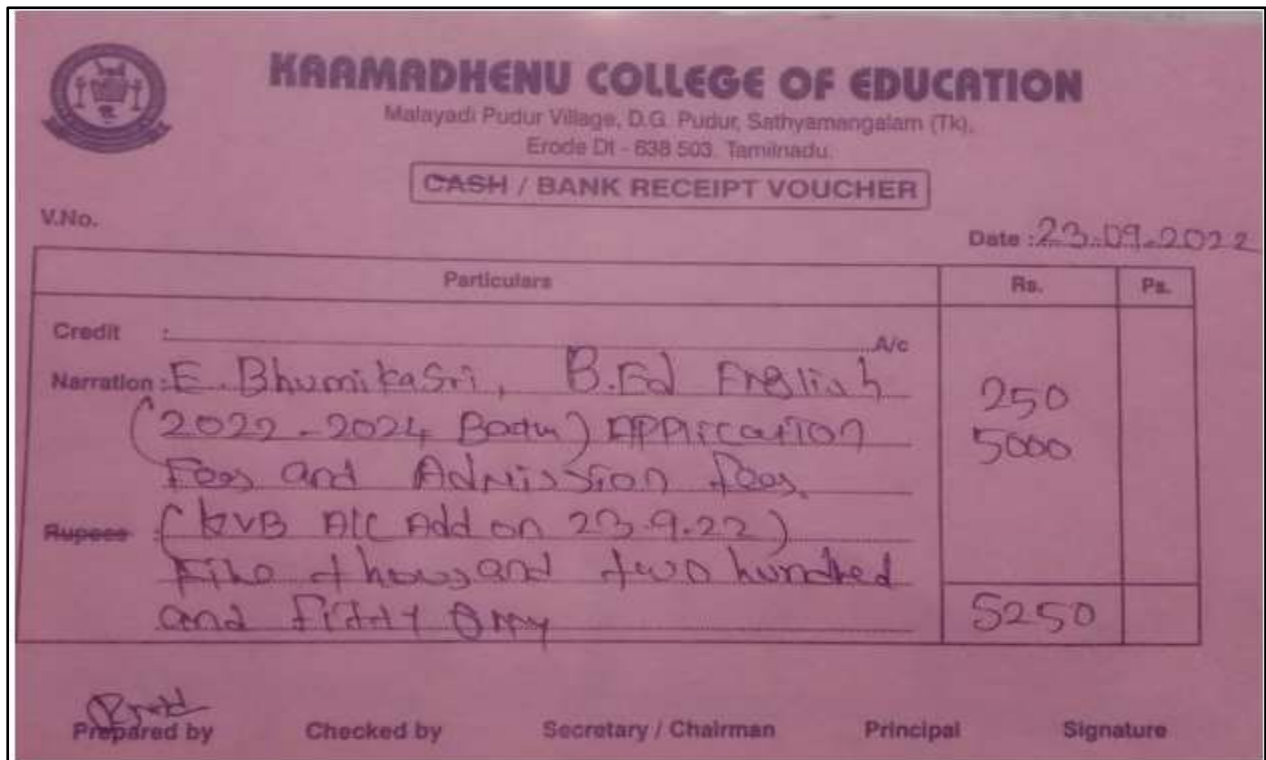 KAAMADHENU COLLEGE OF EDUCATION
Malayadi Pudur Village, D.G. Pudur, Sathyamangalam (Tk),
Erode Dt - 638 503. Tamilnadu.
CASH / BANK RECEIPT VOUCHER
V.No.
Date : 23.09.2022
Particulars Rs. Ps.
Credit : A/c
Narration : E. Bhumikasri, B.Ed English 250
(2022 - 2024 Batch) Application 5000
Fees and Admission fees.
Rupees : (KVB A/C Add on 23.9.22)
Five thousand two hundred
and Fifty Only 5250
Prepared by Checked by Secretary / Chairman Principal Signature